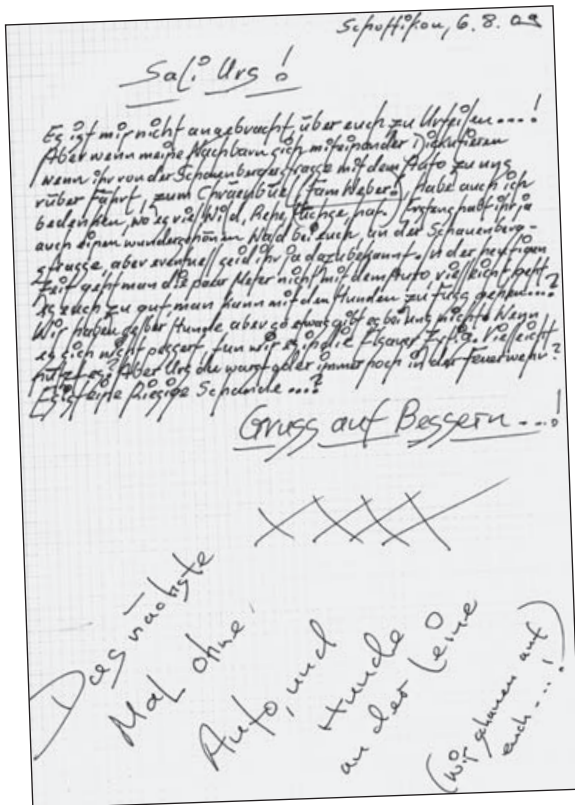 Schottikon, 6. 8. 09
Sali Urs!
Es ist mir nicht angebracht, über euch zu Urteilen....!
Aber wenn meine Nachbarn sich miteinander Diskutieren
wenn ihr von der Schauenbergstrasse mit dem Auto zu uns
rüber Fahrt, zum Chräenbüel (Fam Weber) habe auch ich
bedenken, wo es viel Wild, Rehe, Füchse hat. Erstens habt ihr ja
auch einen wunderschönen Wald bei euch, an der Schauenberg-
strasse, aber eventuell seid ihr ja dazu bekannt. In der heutigen
Zeit geht man die paar Meter nicht mit dem Auto vielleicht geht
es euch zu gut, man kann mit den Hunden zu Fuss gehen....?
Wir haben selber Hunde aber so etwas gibt es bei uns nicht. Wenn
es sich nicht bessert, tun wir es in die Elsauer Zytig. Vielleicht
nützt es? Aber Urs du warst oder immer noch in der Feuerwehr?
Es ist eine Riesige Schande....?
Gruss auf Bessern....!
XXXX
Das nächste
Mal ohne
Auto, und
Hunde
an der Leine
(wir schauen auf
euch....!)